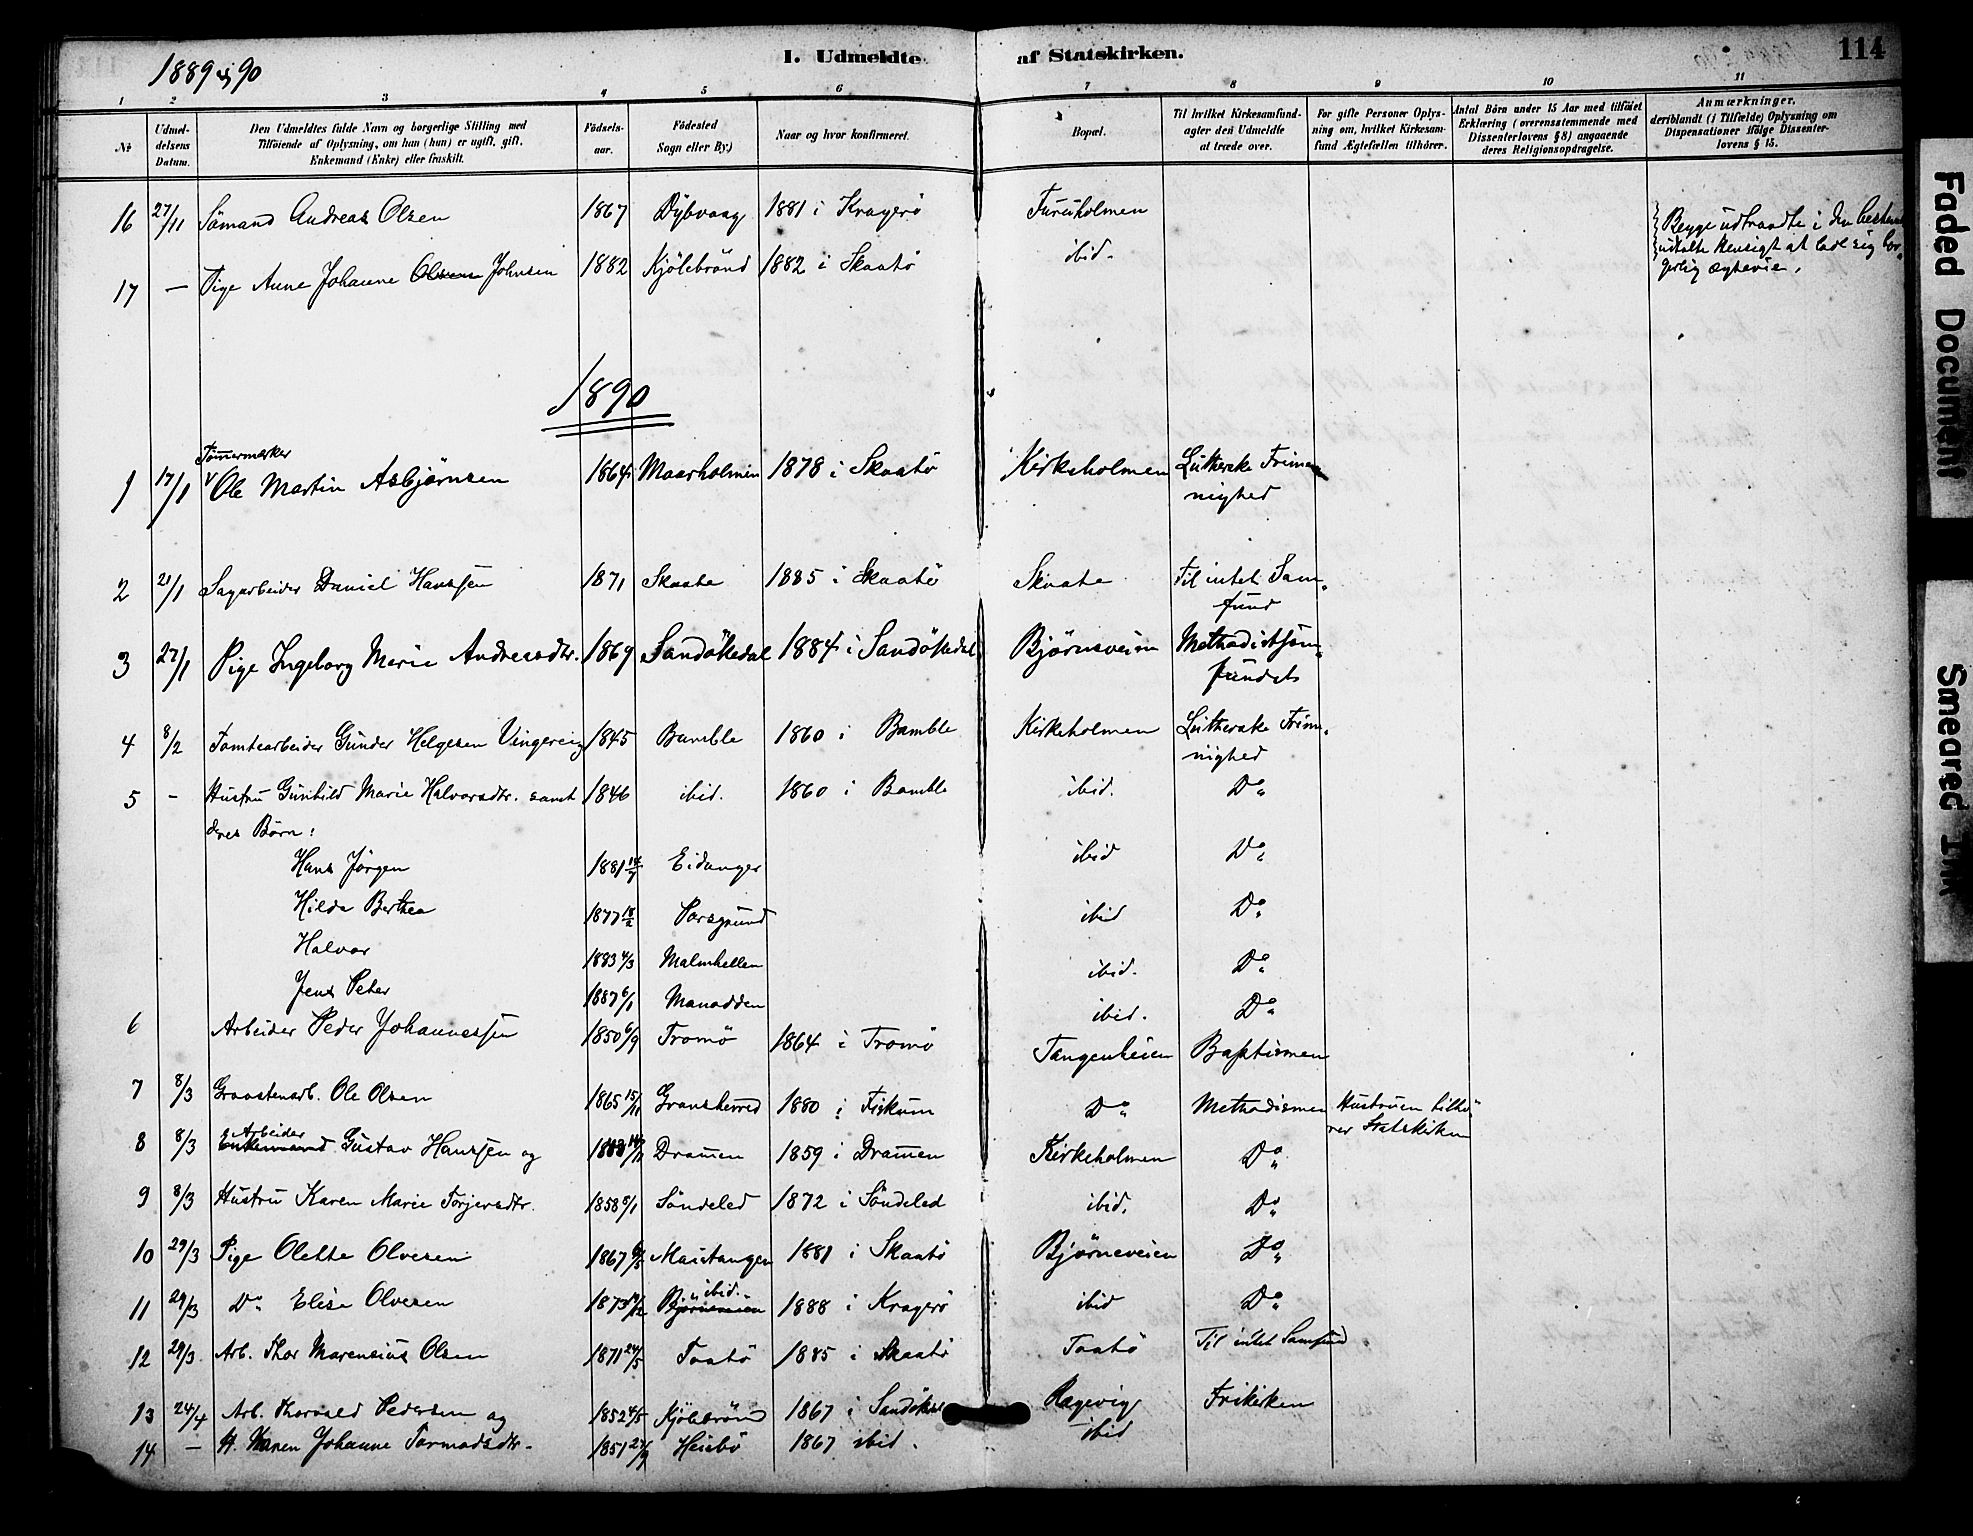 1889 & 90
I. Udmeldte af Statskirken.
114
1 2 3 4 5 6 7 8 9 10 11
№
Udmel-
delsens
Datum.
Den Udmeldtes fulde Navn og borgerlige Stilling med
Tilføiende af Oplysning, om han (hun) er ugift, gift,
Enkemand (Enke) eller fraskilt.
Fødsels-
aar.
Fødested
Sogn eller By)
Naar og hvor konfirmeret.
Bopæl.
Til hvilket Kirkesamfund-
agter den Udmeldte
at træde over.
For gifte Personer Oplys-
ning om, hvilket Kirkesam-
fund Ægtefællen tilhører.
Antal Børn under 15 Aar med tilføiet
Erklæring (overensstemmende med
Dissenterlovens § 8) angaaende
deres Religionsopdragelse.
Anmærkninger,
deriblandt (i Tilfælde) Oplysning om
Dispensationer ifølge Dissenter-
lovens § 15.
16 27/11 Sömand Andreas Olsen 1867 Dybvaag 1881 i Kragerö Furuholmen
Begge udtraadte i den bestemt
udtalte Hensigt at lade sig bor-
gerlig ægtevie.
17 — Pige Anne Johanne Olsen Johnsen 1882 Kjölebrönd 1882 i Skaatö ibid.
1890
Tömmermærker
1 17/1 Ole Martin Asbjörnsen 1864 Maarholmen 1878 i Skaatö Kirkeholmen Lutherske Frime-
nighed
2 21/1 Sagarbeider Daniel Hanssen 1871 Skaatø 1885 i Skaatö Skaatø Til intet Sam-
fund
3 27/1 Pige Ingeborg Marie Andreasdtr. 1869 Sandökedal 1884 i Sandökedal Bjørnsveien Methodistsam-
fundet
4 8/2 Tomtearbeider Gunder Helgesen Vingereig 1845 Bamble 1860 i Bamble Kirkeholmen Lutherske Frim-
nighed
5 - Hustru Gunhild Marie Halvorsdtr. samt 1846 ibid. 1860 i Bamble ibid. Do
deres Børn:
Hans Jörgen 1881 Eidanger ibid Do
Hilda Berthea 1877 18/2 Porsgrund ibid Do
Halvor 1883 4/3 Malmhellen ibid. Do
Jens Peter 1887 6/1 Manodden ibid. Do
6 Arbeider Peder Johannessen 1850 6/9 Tromö 1864 i Tromö Tangenheien Baptismen
7 8/3 Graastenarb. Ole Olsen 1865 15/11 Gransherred 1880 i Fiskum Do Methodismen Hustruen tilhö-
rer Statskirken
8 8/3 Enkemand Arbeider Gustav Hanssen og Drammen 1859 i Drammen Kirkeholmen Do
9 8/3 Hustru Karen Marie Torjersdtr. 1858 8/1 Söndeled 1872 i Söndeled ibid. Do
10 29/3 Pige Olette Olvesen 1867 Maistangen 1881 i Skaatö Bjørneveien Do
11 29/3 Do Elise Olvesen 1873 Bjørneveien ibid. 1888 i Kragerö ibid Do
12 29/3 Arb. Thor Marensius Olsen 1871 24/5 Taatö 1885 i Skaatö Taatö Til intet Samfund
13 24/4 Arb. Thorvald Pedersen og 1852 4/5 Kjölebrönd 1867 i Sandökedal Rægevig Frikirken
14 — H. Maren Johanne Tormodsdtr. 1851 27/9 Heisbö 1867 ibid. ibid
Faded Document
Smeared Ink